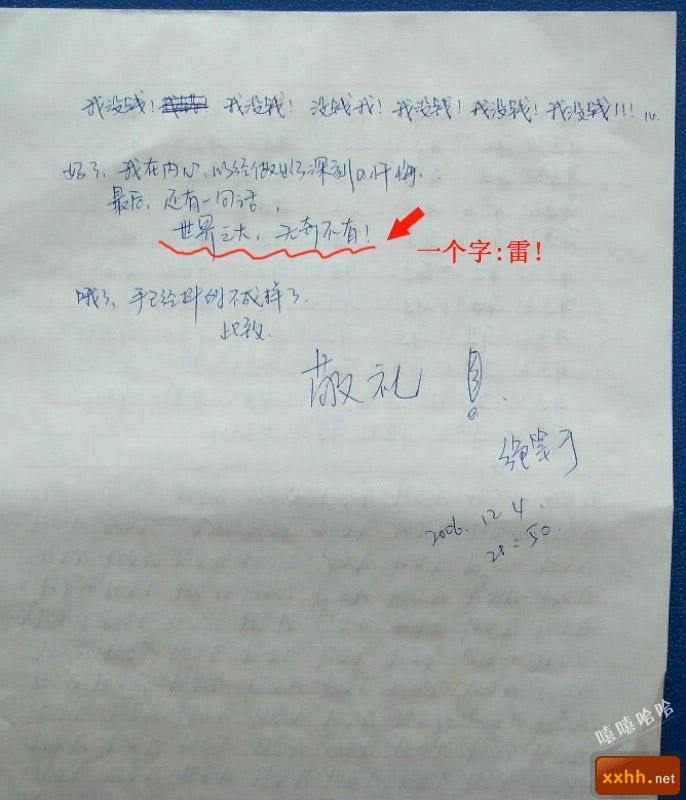 我没钱! 我没钱! 没钱我! 我没钱! 我没钱! 我没钱!!! ...
好了,我在内心,以经做出了深刻的忏悔.
最后,还有一句话,
世界之大,无奇不有!
一个字:雷!
哦了,手已经抖的不成样了.
此致
敬礼!
2006.12.4.
20:50.
嘻嘻哈哈
xxhh.net